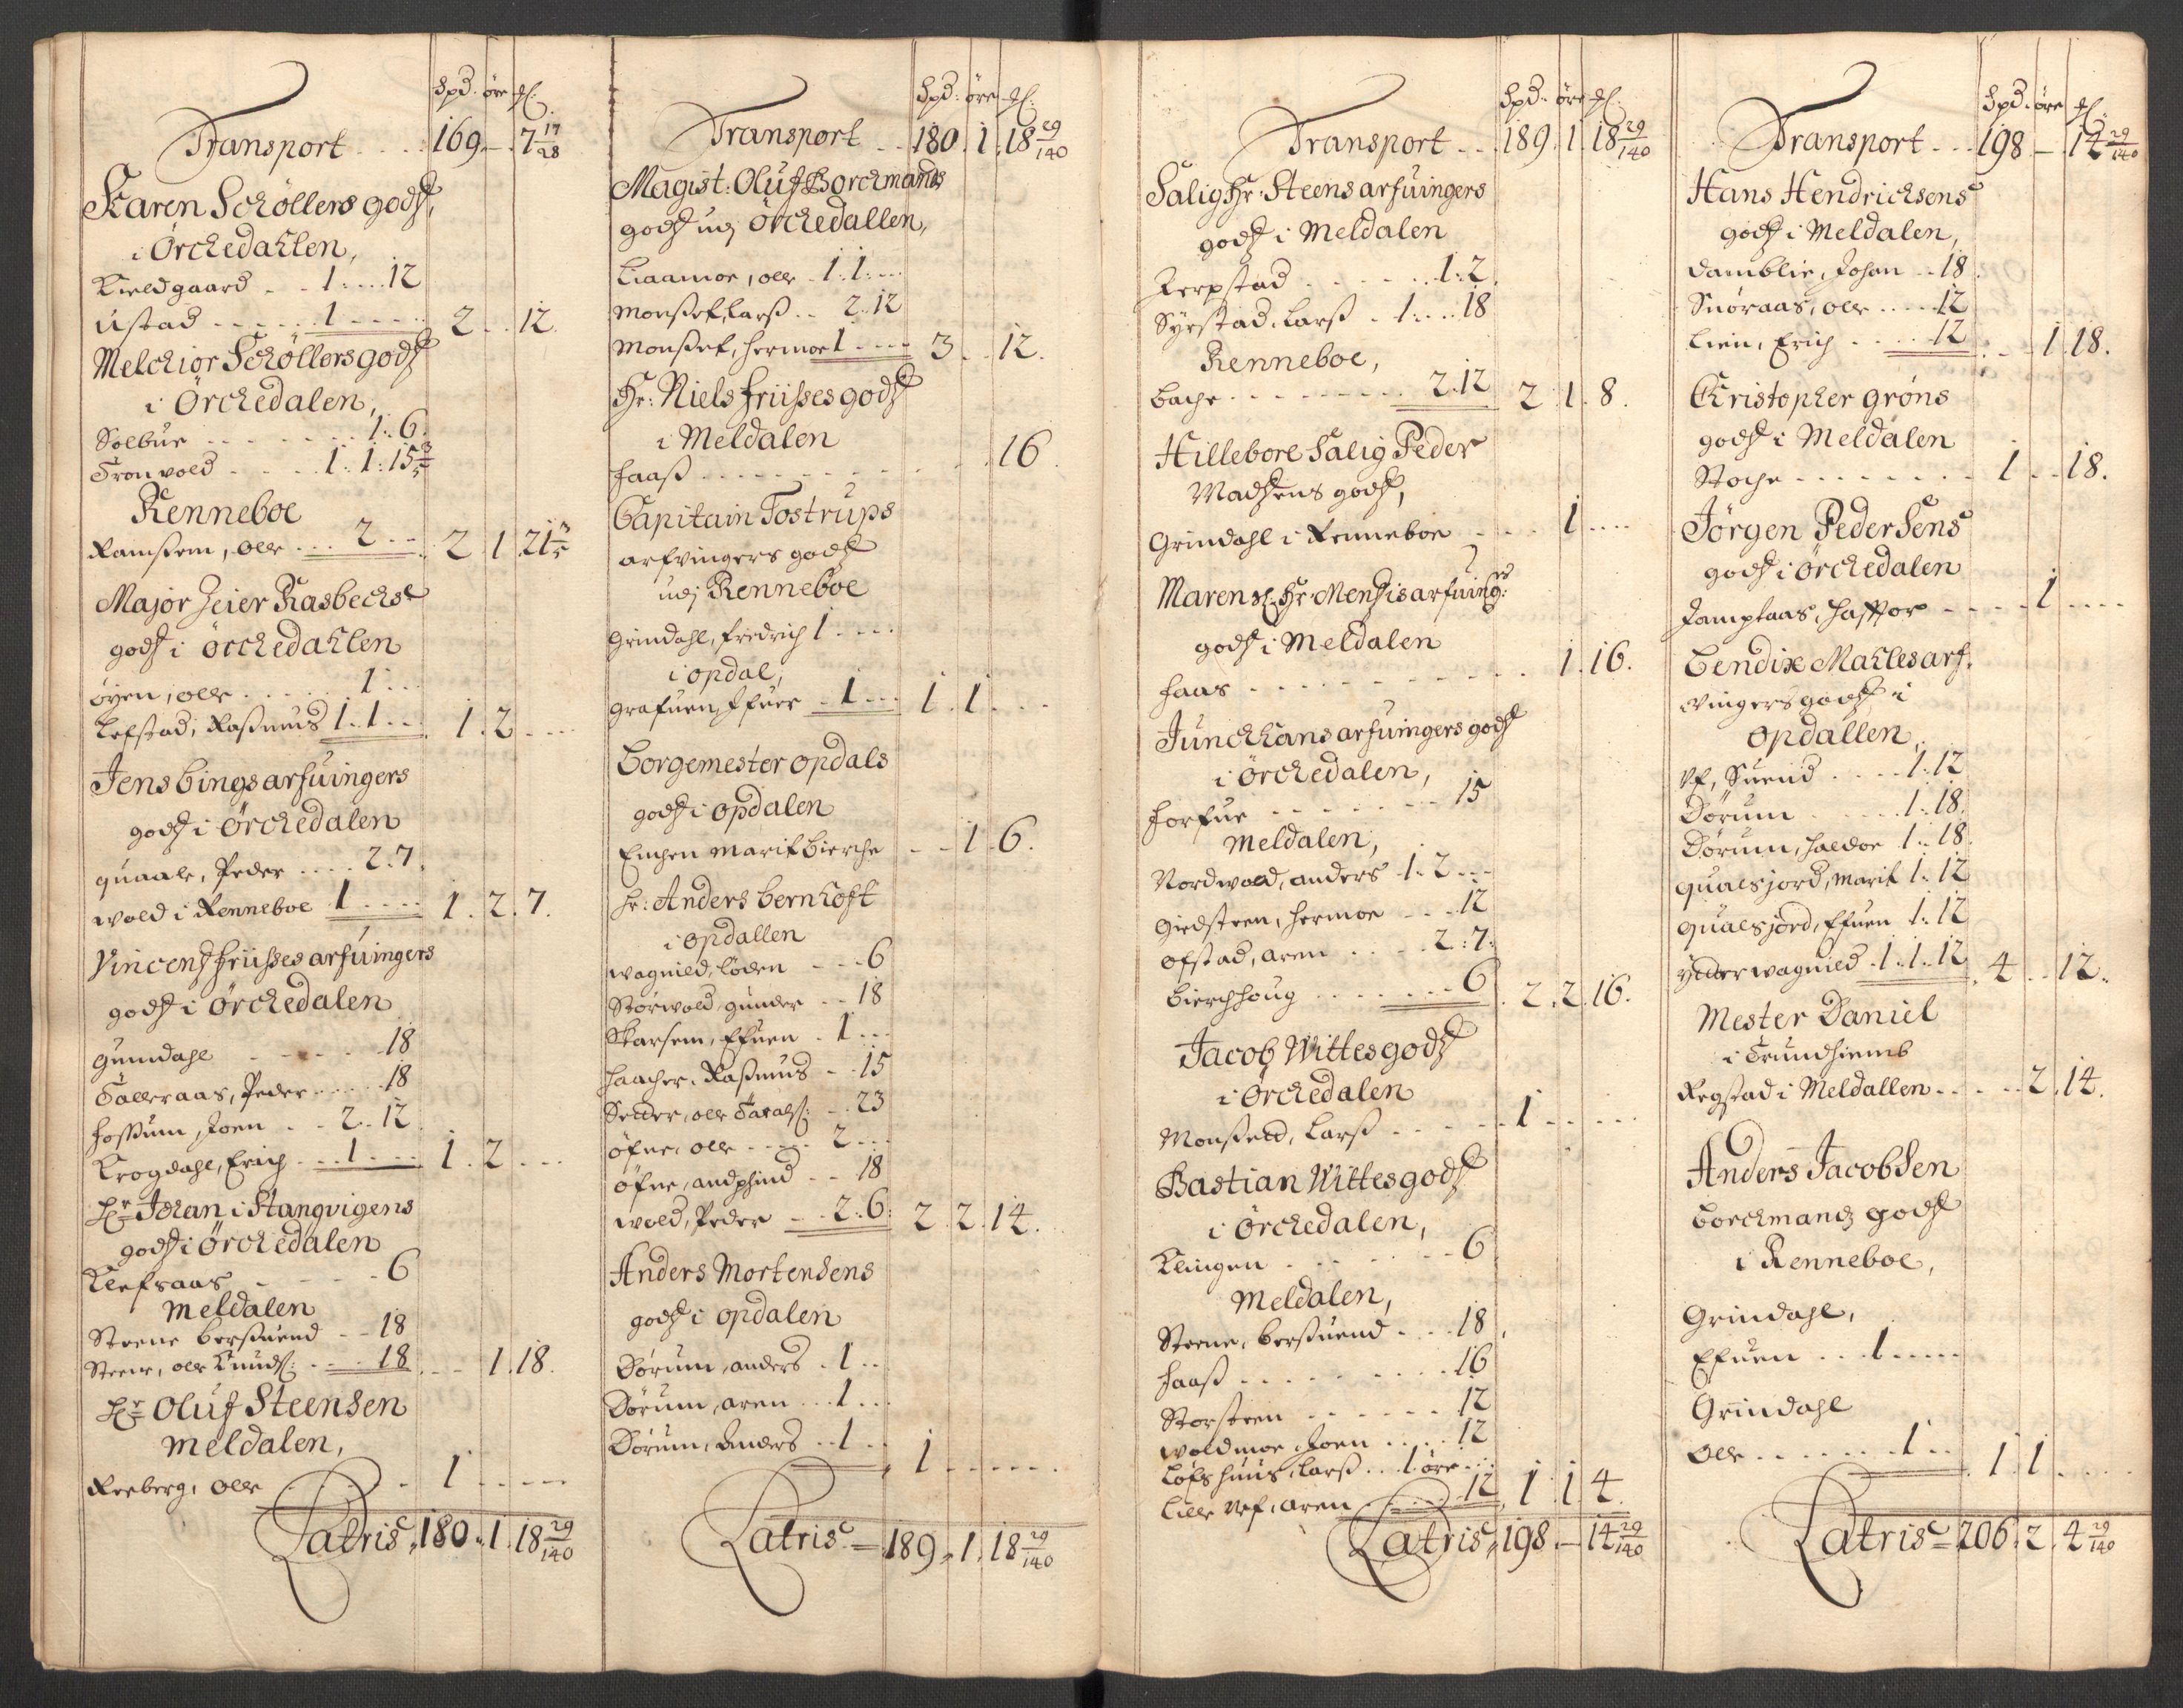 Spd. øre ₰.
Transport .... 169 — 7 17/28
Karen Schøllers godtz,
i Ørchedahlen,
Kieldgaard .. 1 ... 12
Ustad ...... 1 .... 2 .. 12.
Melchior Schøllers godtz
i Ørchedalen,
Solbue ........ 1. 6.
Tronvold ..... 1. 1. 15 3/5
Renneboe
Ramssem, olle ... 2 ... 2 1 21 3/5
Major Zeier Rasbechs
godtz i Ørchedahlen
øyen, olle ...... 1 ...
Lefstad, Rasmus 1. 1 ... 1. 2 ....
Jens bings arfuingers
godtz i Ørchedalen
quaale, Peder .... 2. 7.
wold i Renneboe 1 .... 1. 2. 7.
Vincentz friisses arfuingers
godtz i Ørchedalen
gumdahl ..... 18
Tålleraas, Peder .... 18
fossum, Joen ... 2. 12
Krogdahl, Erich ... 1 .... 1. 2 ...
Hr Johan i Stangvigens
godtz i Ørchedalen
Klefsaas ...... 6
Meldalen
Steene bersuend .. 18
Steene, olle Knuds: ... 18 ... 1. 18.
Hr Oluf Steensen
Meldalen,
Reeberg, olle ...... 1 ....
Latris 180. 1. 18 29/140
Spd. øre ₰.
Transport .. 180. 1. 18 29/140
Magist: Oluf Borchmands
godtz udj Ørchedallen,
Liaamoe, olle . 1. 1 ...
Monsset, Larss .. 2. 12
Monsset, hermoe 1 .... 3 .. 12.
Hr: Niels friisses godtz
i Meldalen
faass .............. 16.
Capitain Tostrups
arfvingers godtz
udj Renneboe
Grindahl, fredrich 1 ....
i opdal,
Grafuen, Ifuer .. 1 ... 1. 1 ...
Borgemester opdals
godtz i opdalen
Enchen marit bierche .. 1. 6.
Hr: Anders bernhoft
i opdallen
wagnild, loden ... 6
Storwold, gunder .. 18
Skarsem, Efuen . 1 ...
haacher, Rasmus .. 15
Setter, olle Tarals: .. 23
øfne, olle ..... 2 ...
øfne, andphind .. 18
wold, Peder .. 2. 6. 2. 2. 14.
Anders Mortensens
godtz i opdalen
Dørum, anders . 1 ..
Dørum, aren ... 1 ..
Dørum, Anders .. 1 .. 1 .....
Latris = 189. 1. 18 29/140
Spd. øre ₰.
Transport ... 189. 1. 18 29/140
Salig Hr. Steens arfuingers
godtz i Meldalen
Jerpstad ....... 1. 2.
Syrstad, Larss . 1 ... 18
Renneboe,
bache ......... 2. 12 2. 1. 8.
Hillebore Salig Peder
Madtzens godtz,
Grindahl i Renneboe .... 1 ....
Maren Sl. Hr. Mentzis arfuing:
godtz i Meldalen
faas ............ 1. 16.
Junchhans arfuingers godtz
i Ørchedalen,
forfue ........ 15
Meldalen,
Nordwold, anders . 1. 2 ...
Giedsteen, hermoe ... 12
ofstad, aren .... 2. 7.
bierchhoug ....... 6 . 2. 2. 16.
Jacob Wittes godtz
i Ørchedalen
Monssett, Larss ...... 1 ....
Bastian Wittes godtz
i Ørchedalen,
Klingen ....... 6
Meldalen,
Steene, bersuend ... 18
faass ......... 16
Storsteen ...... 12
woldmoe, Joen .... 12
Løfs huus, Larss .. 1 øre ...
Lille Ref, aren ..... 12 1 1 4.
Latris 198. — 14 29/140
Spd. øre ₰.
Transport ... 198 — 14 29/140
Hans Hendrichsens
godtz i Meldalen,
Damblie, Johan .. 18.
Snøraas, olle .... 12
Lien, Erich .... 12 ... 1. 18.
Christopher grøns
godtz i Meldalen
Stoche ....... 1 .. 18.
Jørgen Pedersens
godtz i Ørchedalen
Jamptaas, haffor .... 1 ....
Bendix Mahles arf.
vingers godtz i
Opdallen,
Vf, Suend .... 1. 12
Dørum ..... 1. 18.
Dørum, haldor 1. 18.
qualsjord, marit 1. 12
qualsjord, Efuen 1. 12
ytter wagnild . 1. 1. 12 . 4 .. 12.
Mester Daniel
i Trundhiemb
Regstad i Meldallen ..... 2. 14.
Anders Jacobsen
borchmands godtz
i Renneboe,
Grindahl,
Efuen ... 1 .....
Grindahl
Olle ....... 1 .. 1. 1 ...
Latris = 206. 2. 4 29/140